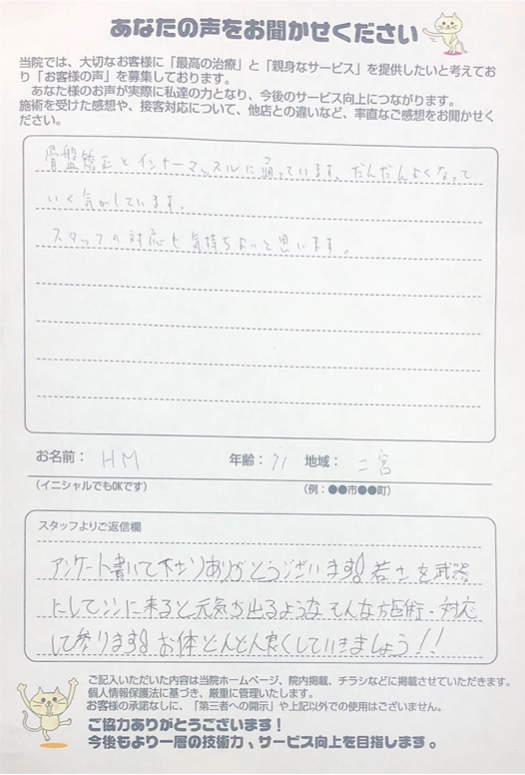 あなたの声をお聞かせください
当院では、大切なお客様に「最高の治療」と「親身なサービス」を提供したいと考えてお
り「お客様の声」を募集しております。
あなた様のお声が実際に私達の力となり、今後のサービス向上につながります。
施術を受けた感想や、接客対応について、他店との違いなど、率直なご感想をお聞かせく
ださい。
骨盤矯正とインナーマッスルに通っています。だんだんよくなって
いく気がしています。
スタッフの対応も気持ちよいと思います。
お名前: HM 年齢: 71 地域: 二宮
(イニシャルでもOKです) (例:●●市●●町)
スタッフよりご返信欄
アンケート書いて下さりありがとうございます!若さを武器
にしてここに来ると元気が出るような そんな施術・対応
して参ります!お体どんどん良くしていきましょう!!
ご記入いただいた内容は当院ホームページ、院内掲載、チラシなどに掲載させていただきます。
個人情報保護法に基づき、厳重に管理いたします。
お客様の承諾なしに、「第三者への開示」や上記以外での使用はございません。
ご協力ありがとうございます!
今後もより一層の技術力、サービス向上を目指します。